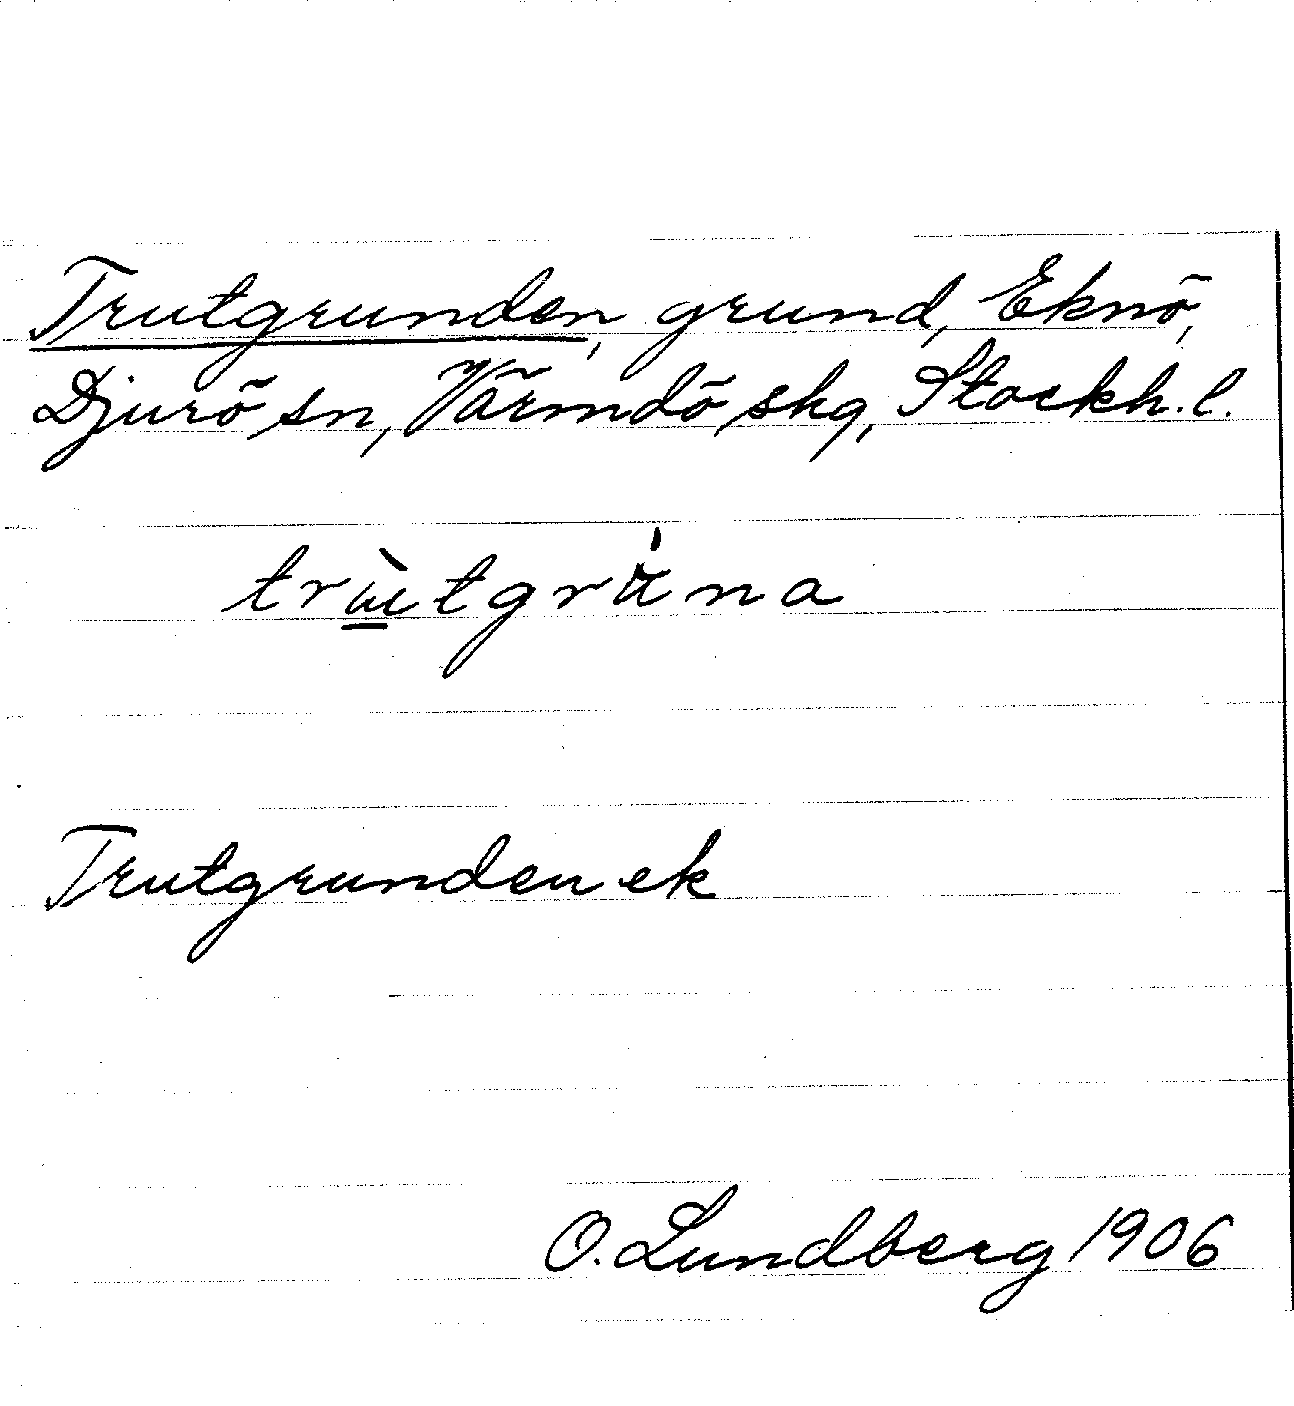 Trutgrunden, grund, Eknö,
Djurö sn, Värmdö skg, Stockh. l.
trùtgrána
Trutgrunden ek
O. Lundberg 1906